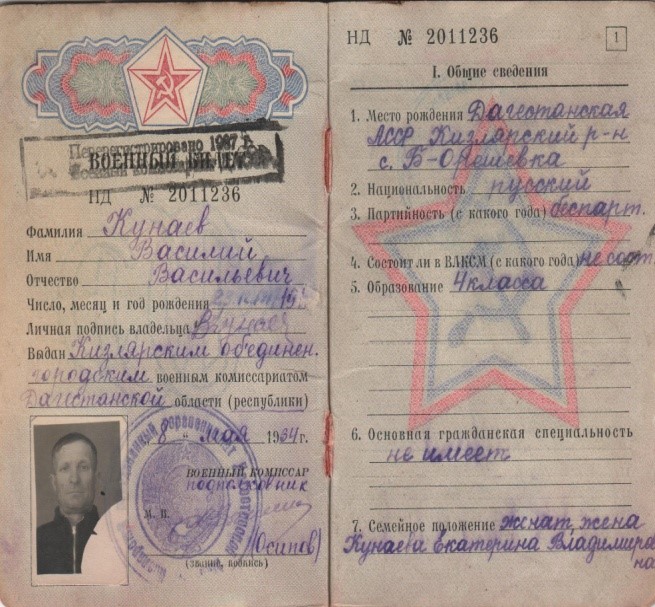 Перерегистрировано 1987 г.
ВОЕННЫЙ БИЛЕТ
НД № 2011236
Фамилия Кунаев
Имя Василий
Отчество Васильевич
Число, месяц и год рождения
Личная подпись владельца
Выдан Кизлярским объединен.
городским военным комиссариатом
Дагестанской области (республики)
8 " мая 1964 г.
ВОЕННЫЙ КОМИССАР
подполковник
М. П.
(Осипов)
(звание, подпись)
НД № 2011236
1
I. Общие сведения
1. Место рождения Дагестанская
АССР Кизлярский р-н
с. Б-Орешевка
2. Национальность русский
3. Партийность (с какого года) беспарт.
4. Состоит ли в ВЛКСМ (с какого года) не сост.
5. Образование 4 класса
6. Основная гражданская специальность
не имеет
7. Семейное положение женат, жена
Кунаева Екатерина Владимиров
на